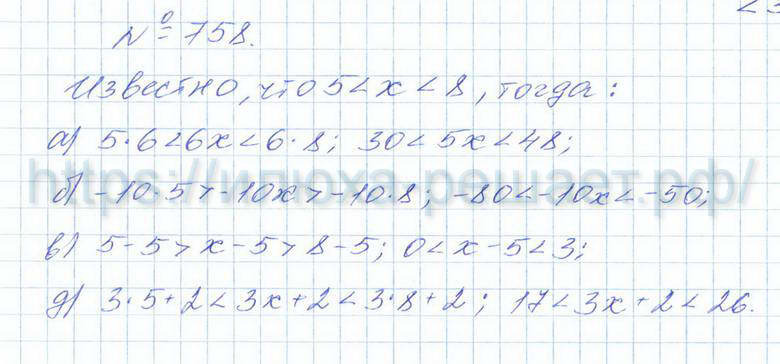 <3
№ 758.
Известно, что 5<x<8, тогда:
а) 5·6<6x<6·8; 30<5x<48;
https://илюха-решает.рф/
б) -10·5>-10x>-10·8; -80<-10x<-50;
в) 5-5>x-5>8-5; 0<x-5<3;
д) 3·5+2<3x+2<3·8+2; 17<3x+2<26.